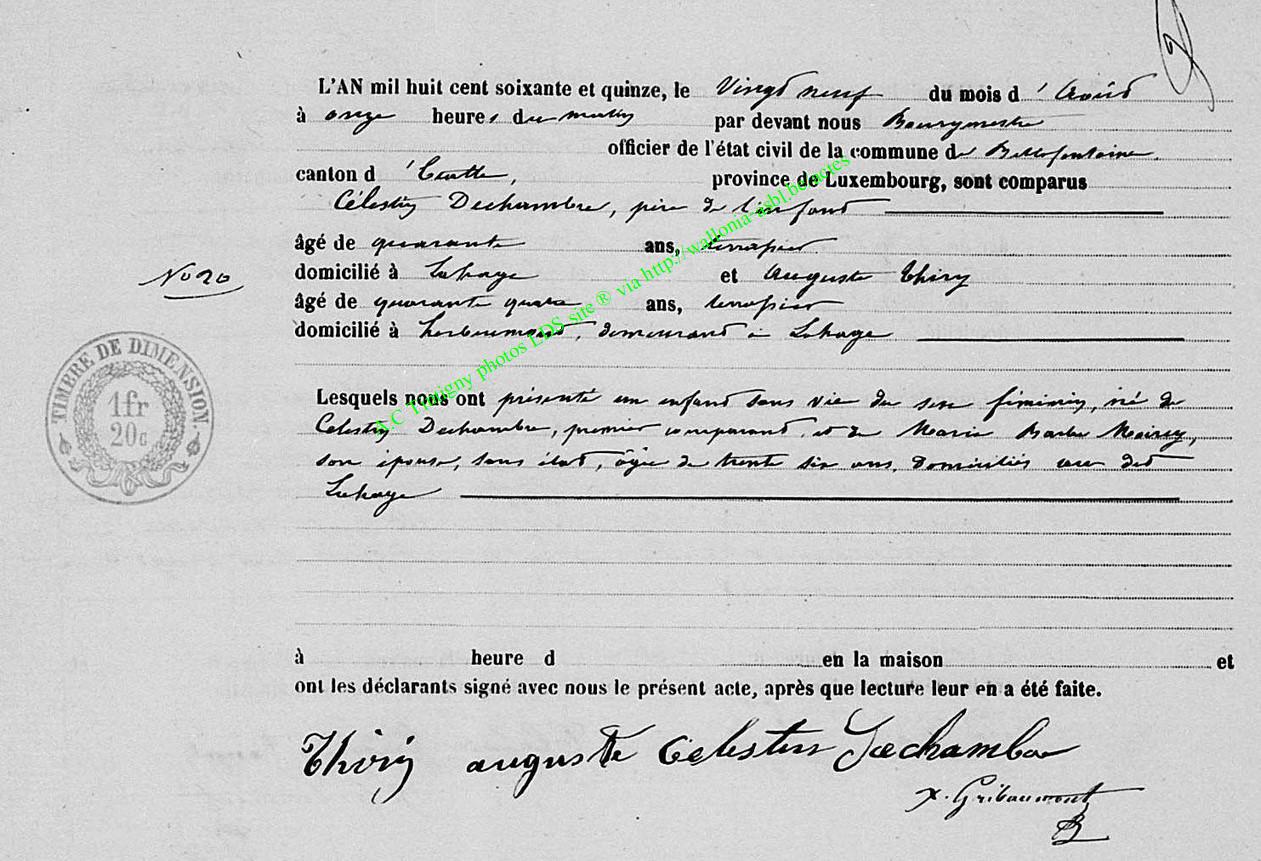 L'AN mil huit cent soixante et quinze, le Vingt neuf du mois d'Août
à onze heures du matin par devant nous Bourgmestre
officier de l'état civil de la commune de Bellefontaine
canton d'Etalle, province de Luxembourg, sont comparus
Célestin Dechambre, père de l'enfant
âgé de quarante ans, terrassier
domicilié à Lahage et Auguste Thiry
âgé de quarante quatre ans, terrassier
domicilié à herbeumont, demeurant à Lahage
No 20
TIMBRE DE DIMENSION.
1fr
20c
Lesquels nous ont présenté un enfant sans vie du sexe féminin, né de
Célestin Dechambre, premier comparant, et de Marie Barbe
son épouse, sans état, âgée de trente six ans, domiciliés au dit
Lahage
à heure d en la maison et
ont les déclarants signé avec nous le présent acte, après que lecture leur en a été faite.
Thiry auguste Celestin Dechambre
x. Gribaumont
A.C Tintigny photos EDS site ® via http://wallonia-asbl.be/actes